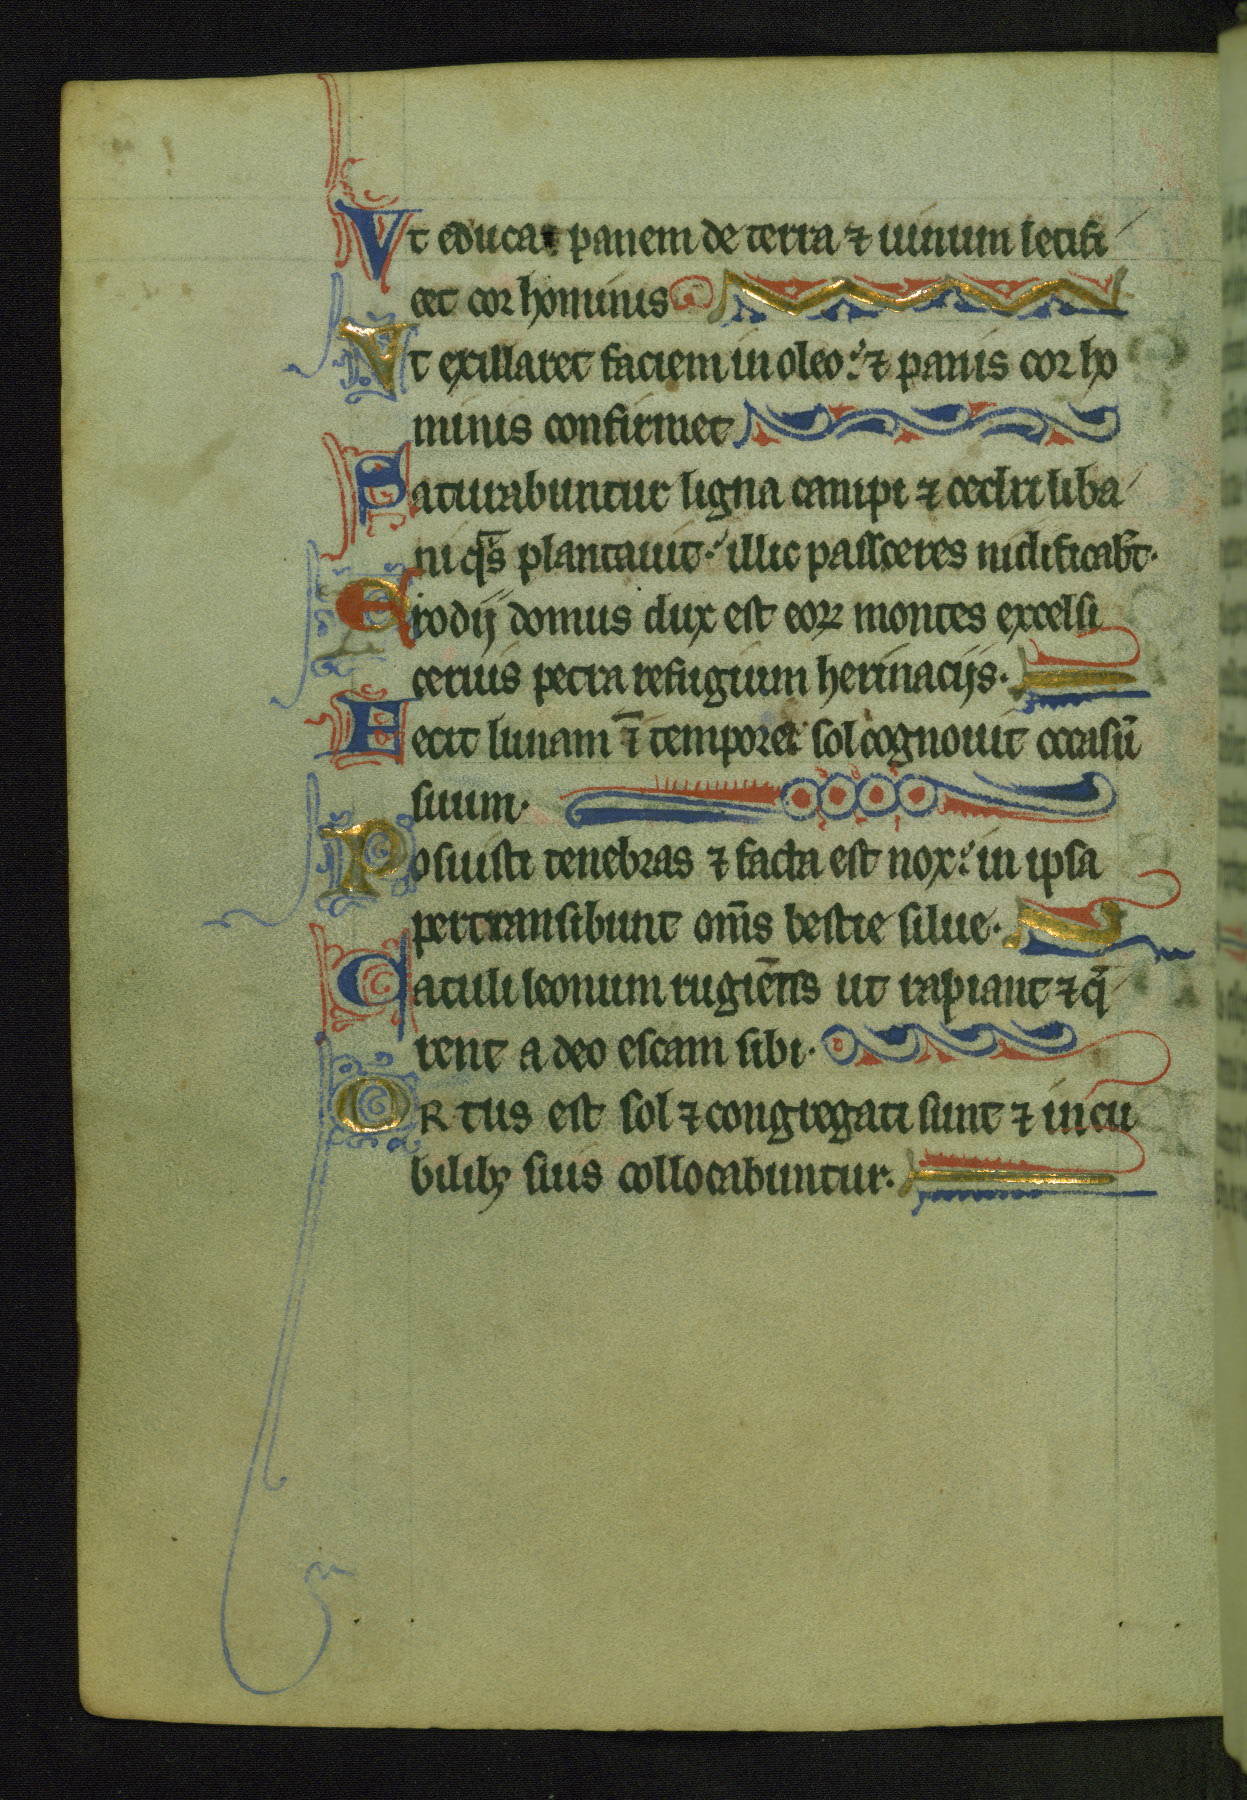 Vt educat panem de terra ⁊ uinum letifi
cet cor hominis
Vt exillaret faciem in oleo: ⁊ panis cor ho
minis confirmet
Saturabuntur ligna campi ⁊ cedri liba
ni q̄s plantauit. illic passceres nidificabt̄.
Erodij domus dux est eoꝝ montes excelsi
ceruis petra refugium herinacijs.
Fecit lunam ī tempore: sol cognouit occasū
suum.
Posuisti tenebras ⁊ facta est nox: in ipsa
pertransibunt om̄s bestie silue.
Catuli leonum rugiētis ut rapiant ⁊ q̄
rent a deo escam sibi.
Ortus est sol ⁊ congregati sunt ⁊ in cu
bilibꝫ suis collocabuntur.